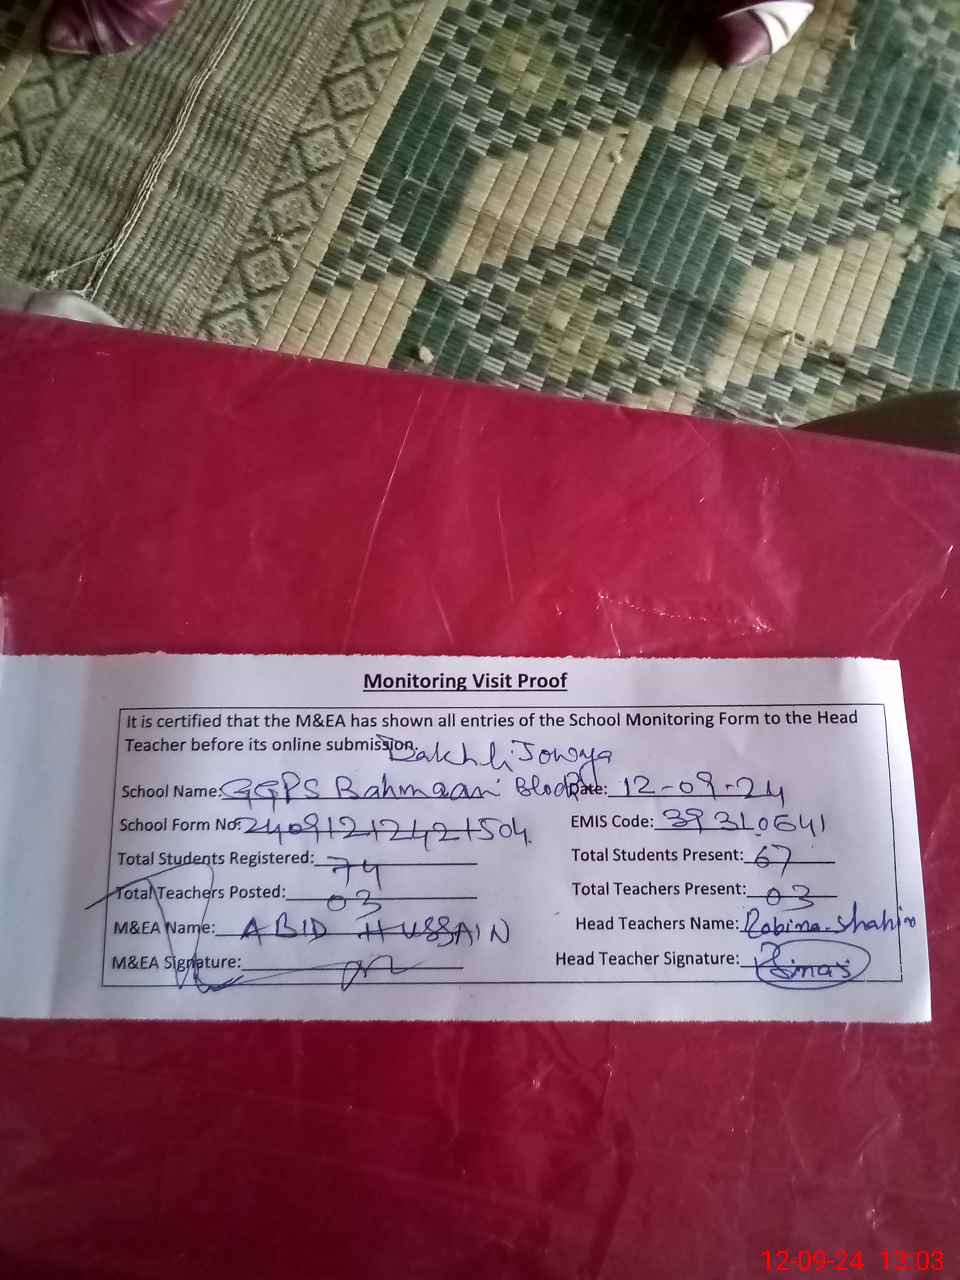 Monitoring Visit Proof
It is certified that the M&EA has shown all entries of the School Monitoring Form to the Head
Teacher before its online submission.
Dakhli Jowya
School Name: GGPS Bahmaani Block Date: 12-09-24
School Form No: 2409121242+504 EMIS Code: 39310641
Total Students Registered: 74 Total Students Present: 67
Total Teachers Posted: 03 Total Teachers Present: 03
M&EA Name: ABID HUSSAIN Head Teachers Name: Robina Shahin
M&EA Signature: Head Teacher Signature:
12-09-24 13:03